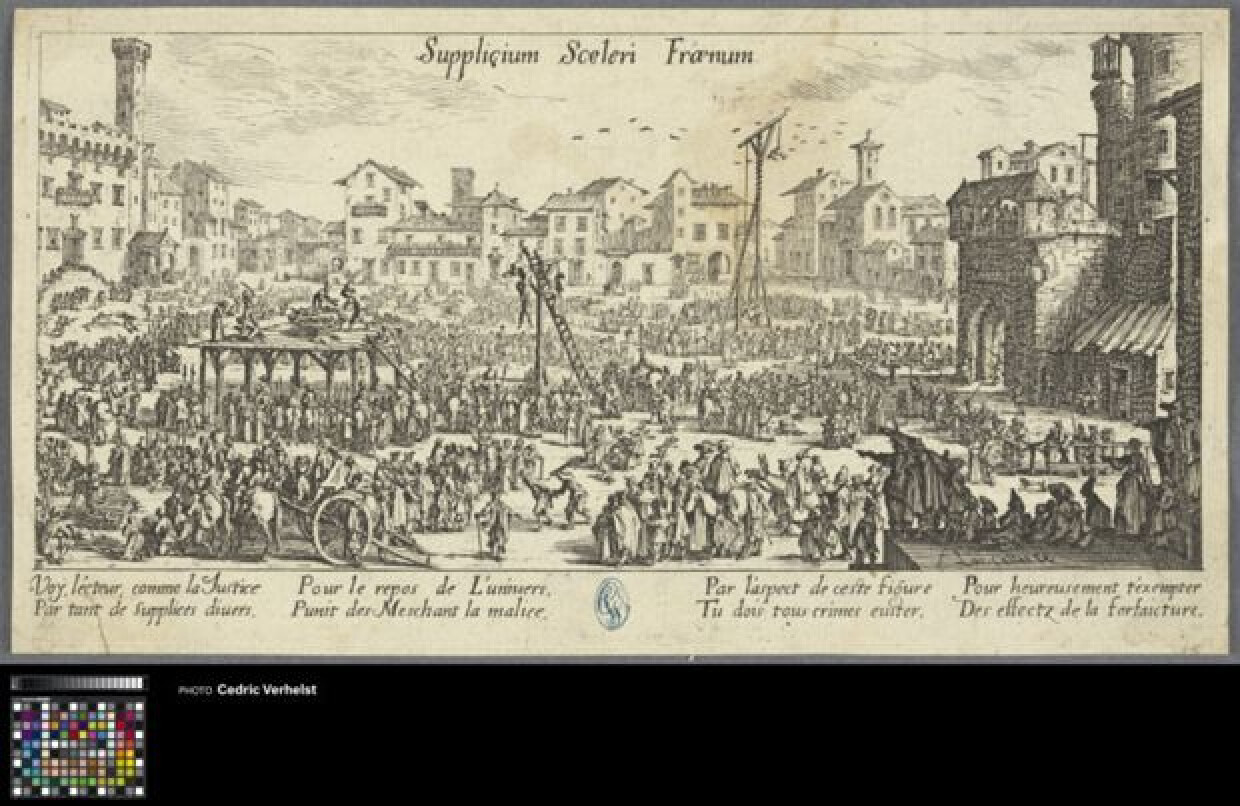 Suppliçium Sceleri Frænum
Voy, lécteur, comme la Justice
Par tant de supplices diuers,
Pour le repos de L'uniuers,
Punit des Meschant la malice,
Par l'aspect de ceste figure
Tu dois tous crimes euiter,
Pour heureusement t'exempter
Des effectz de la forfaicture.
PHOTO Cedric Verhelst